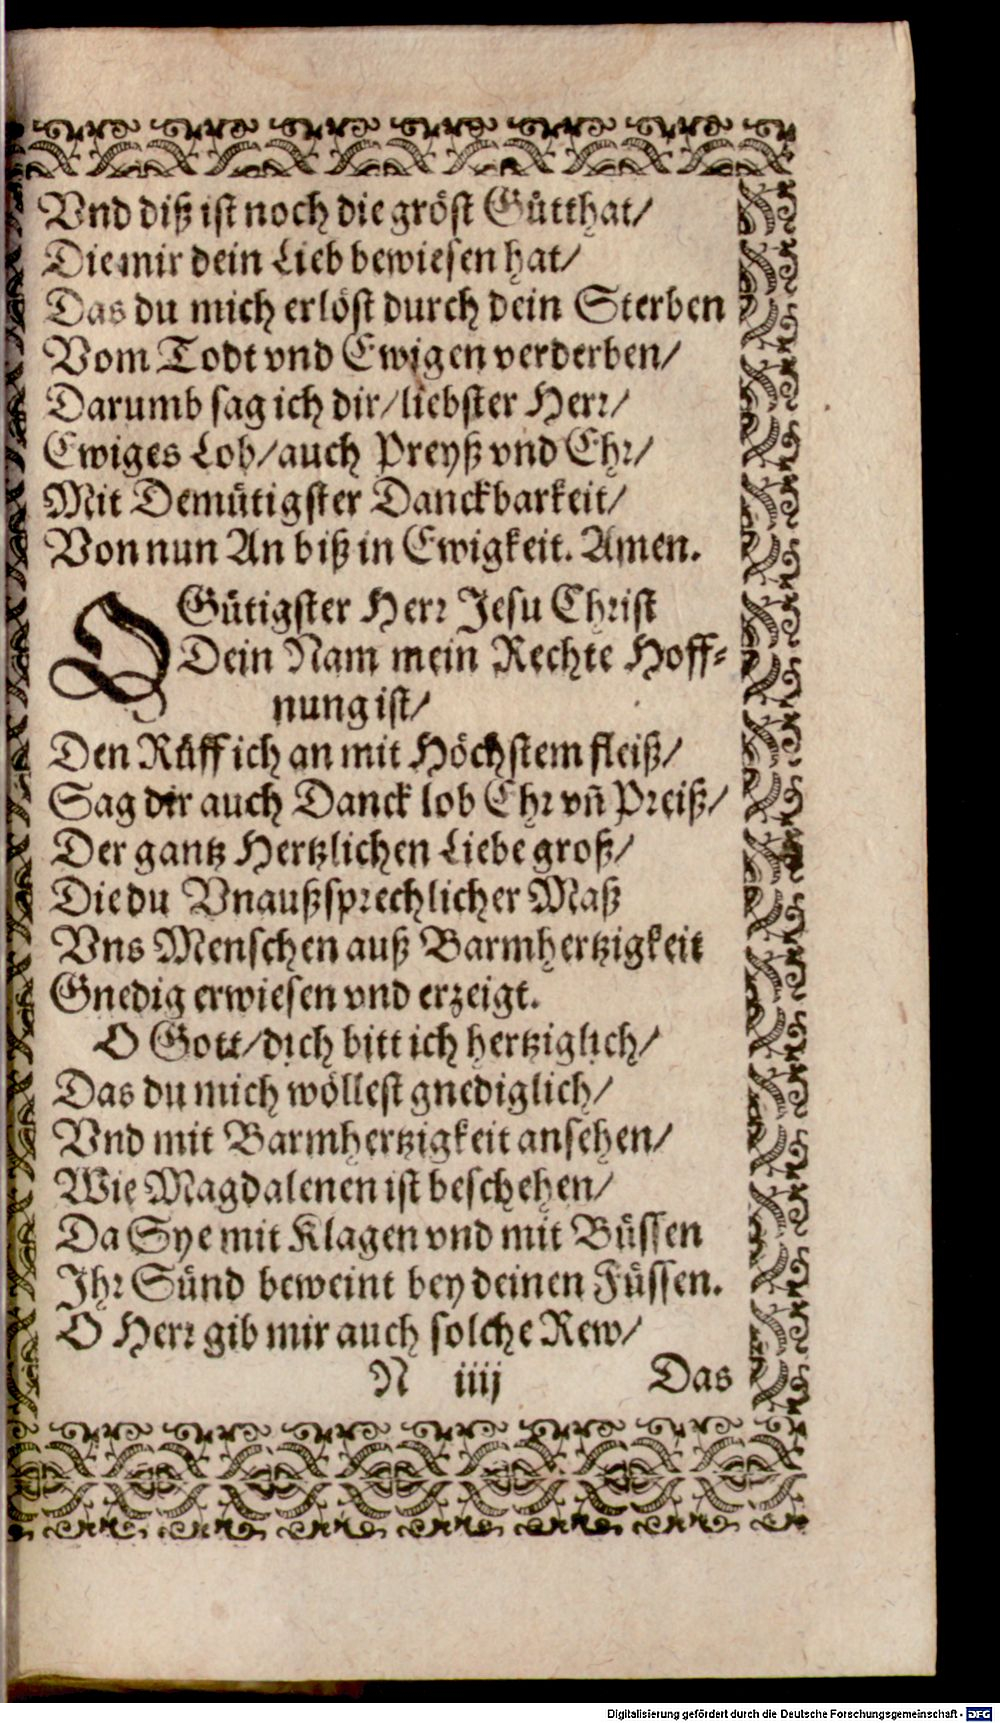 Vnd diß ist noch die gröst Gütthat/
Die mir dein Lieb bewiesen hat/
Das du mich erlöst durch dein Sterben
Vom Todt vnd Ewigen verderben/
Darumb sag ich dir/liebster Herr/
Ewiges Lob/auch Preyß vnd Ehr/
Mit Demütigster Danckbarkeit/
Von nun An biß in Ewigkeit. Amen.
O Gütigster Herr Jesu Christ
Dein Nam mein Rechte Hoff-
nung ist/
Den Rüff ich an mit Höchstem fleiß/
Sag dir auch Danck lob Ehr vñ Preiß/
Der gantz Hertzlichen Liebe groß/
Die du Vnaußsprechlicher Maß
Vns Menschen auß Barmhertzigkeit
Gnedig erwiesen vnd erzeigt.
O Gott/dich bitt ich hertziglich/
Das du mich wöllest gnediglich/
Vnd mit Barmhertzigkeit ansehen/
Wie Magdalenen ist beschehen/
Da Sye mit Klagen vnd mit Büssen
Ihr Sünd beweint bey deinen Füssen.
O Herr gib mir auch solche Rew/
N iiij Das
Digitalisierung gefördert durch die Deutsche Forschungsgemeinschaft - DFG